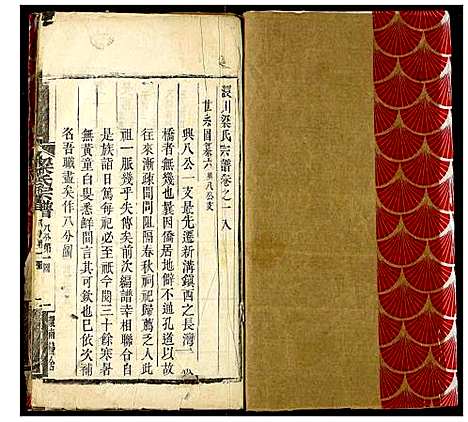 梁氏宗譜卷之一
世系圖第六 興八公支
興八公一支最先遷新溝鎮西之長灣
橋者無幾也曩因僑居地僻不通孔道以故
往來漸疎問問阻隔春秋祠祀歸薦乏人此
祖一脈幾乎失傳矣前次編譜幸相聯合自
是族誼日篤每祠必至祇今閱三十餘寒暑
無黄童白叟悉鮮間言其可欽也巳依次補
名吾職盡矣作八分圖
梁氏宗譜